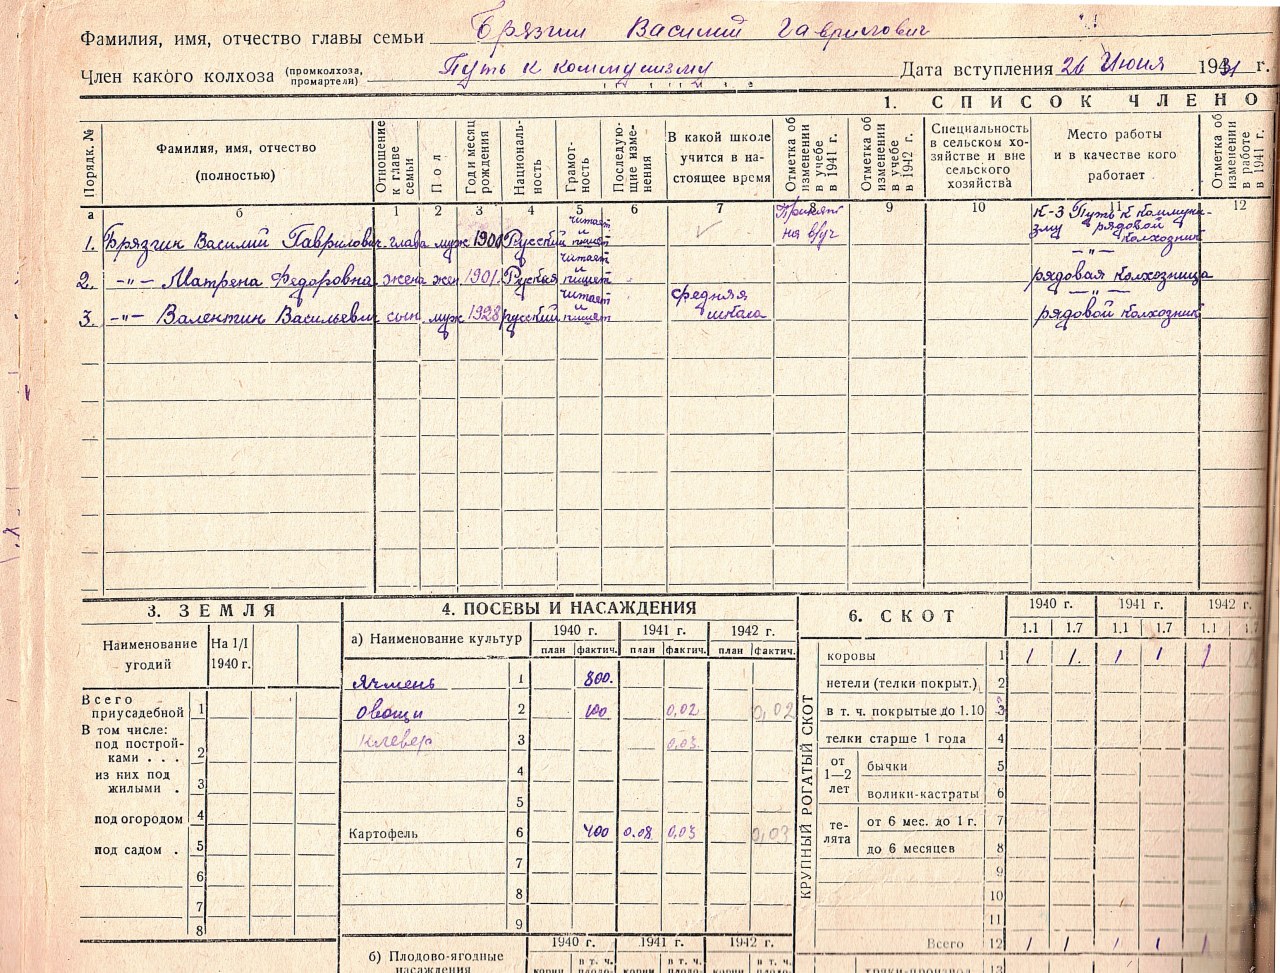 Фамилия, имя, отчество главы семьи Брязгин Василий Гаврилович
Член какого колхоза (промколхоза, промартели) Путь к коммунизму Дата вступления 26 Июня 1931 г.
1. СПИСОК ЧЛЕНО
Порядк. №
Фамилия, имя, отчество (полностью)
Отношение к главе семьи
Пол
Год и месяц рождения
Националь-ность
Грамот-ность
Последую-щие изме-нения
В какой школе учится в на-стоящее время
Отметка об изменении в учебе в 1941 г.
Отметка об изменении в учебе в 1942 г.
Специальность в сельском хо-зяйстве и вне сельского хозяйства
Место работы и в качестве кого работает
Отметка об изменении в работе в 1941 г.
а б 1 2 3 4 5 6 7 8 9 10 11 12
1. Брязгин Василий Гаврилович глава муж 1900 Русский читает и пишет К-з Путь к коммуни-зму рядовой колхозник
2. -"- Матрена Федоровна жена жен. 1901. Руская читает и пишет -"- рядовая колхозница
3. -"- Валентин Васильевич сын муж 1928 русский читает и пишет средняя школа -"- рядовой колхозник
3. ЗЕМЛЯ
Наименование угодий На 1/I 1940 г.
Всего приусадебной 1
В том числе: под построй-ками . . . 2
из них под жилыми . 3
под огородом 4
под садом . 5
6
7
8
4. ПОСЕВЫ И НАСАЖДЕНИЯ
а) Наименование культур 1940 г. 1941 г. 1942 г.
план фактич. план фактич. план фактич.
Ячмень 1 800.
Овощи 2 100 0,02 0,02
Клевер 3 0,03
4
5
Картофель 6 400 0.08 0,03 0,03
7
8
9
б) Плодово-ягодные насаждения 1940 г. 1941 г. 1942 г.
корни в т. ч. плодо- корни в т. ч. плодо- корни в т. ч. плодо-
6. СКОТ
1940 г. 1941 г. 1942 г.
1.1 1.7 1.1 1.7 1.1 1.7
КРУПНЫЙ РОГАТЫЙ СКОТ
коровы 1 1 1. 1 1 1 1
нетели (телки покрыт.) 2
в т. ч. покрытые до 1.10 3
телки старше 1 года 4
от 1—2 лет бычки 5
волики-кастраты 6
те-лята от 6 мес. до 1 г. 7
до 6 месяцев 8
9
10
11
Всего 12 1 1 1 1 1
13